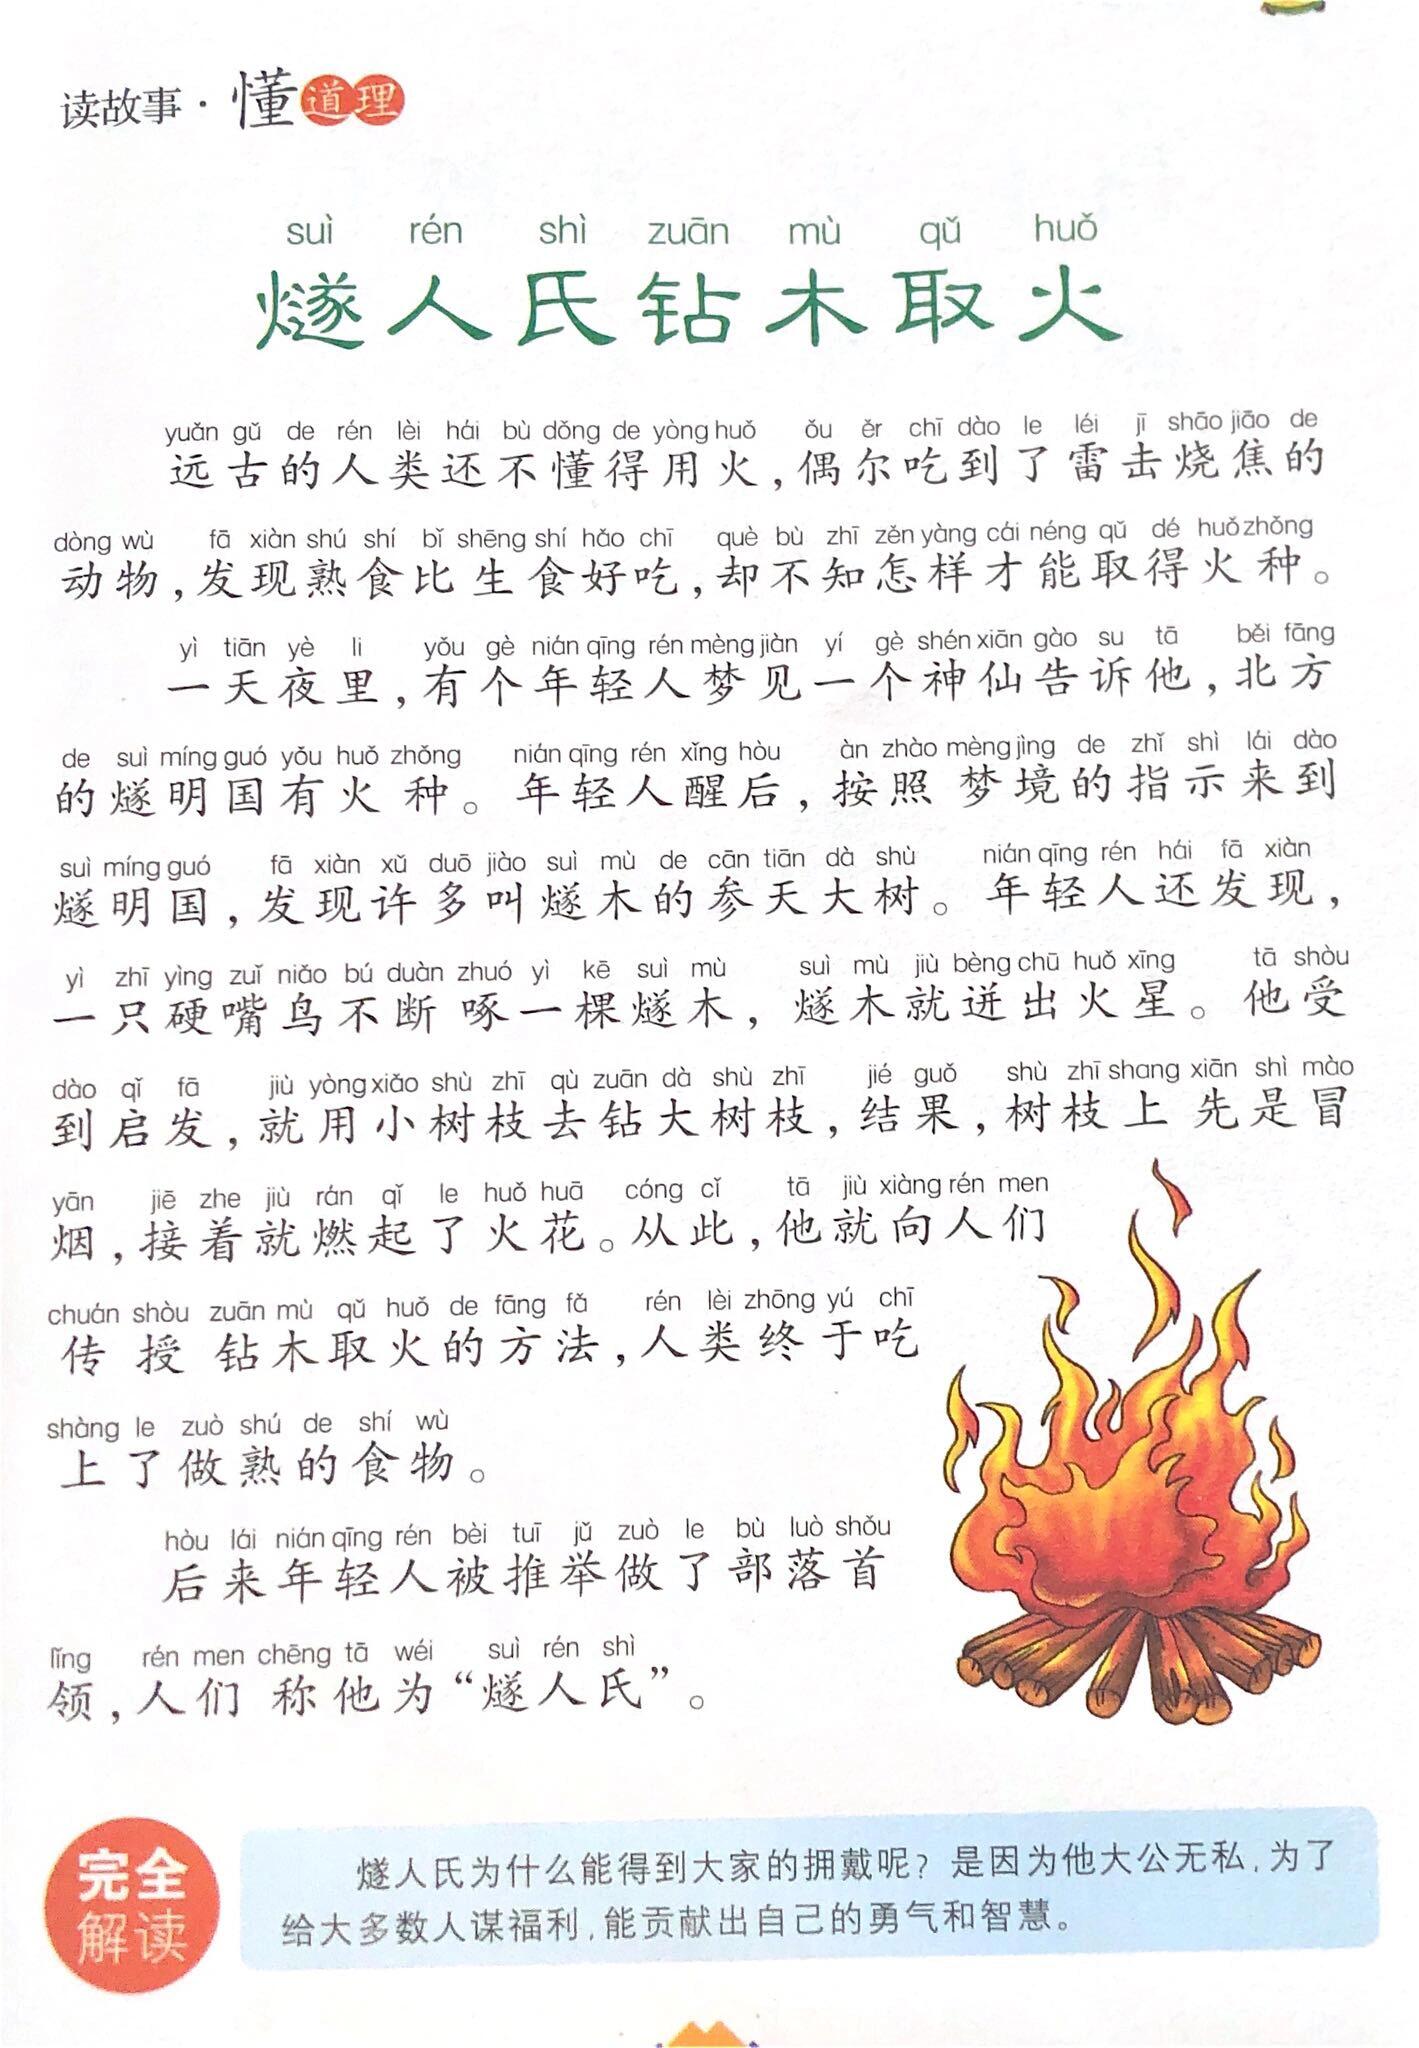 读故事·懂道理
suì rén shì zuān mù qǔ huǒ
燧人氏钻木取火
yuǎn gǔ de rén lèi hái bù dǒng de yòng huǒ ǒu ěr chī dào le léi jī shāo jiāo de
远古的人类还不懂得用火，偶尔吃到了雷击烧焦的
dòng wù fā xiàn shú shí bǐ shēng shí hǎo chī què bù zhī zěn yàng cái néng qǔ dé huǒ zhǒng
动物，发现熟食比生食好吃，却不知怎样才能取得火种。
yì tiān yè li yǒu gè nián qīng rén mèng jiàn yí gè shén xiān gào su tā běi fāng
一天夜里，有个年轻人梦见一个神仙告诉他，北方
de suì míng guó yǒu huǒ zhǒng nián qīng rén xǐng hòu àn zhào mèng jìng de zhǐ shì lái dào
的燧明国有火种。年轻人醒后，按照梦境的指示来到
suì míng guó fā xiàn xǔ duō jiào suì mù de cān tiān dà shù nián qīng rén hái fā xiàn
燧明国，发现许多叫燧木的参天大树。年轻人还发现，
yì zhī yìng zuǐ niǎo bú duàn zhuó yì kē suì mù suì mù jiù bèng chū huǒ xīng tā shòu
一只硬嘴鸟不断啄一棵燧木，燧木就迸出火星。他受
dào qǐ fā jiù yòng xiǎo shù zhī qù zuān dà shù zhī jié guǒ shù zhī shang xiān shì mào
到启发，就用小树枝去钻大树枝，结果，树枝上先是冒
yān jiē zhe jiù rán qǐ le huǒ huā cóng cǐ tā jiù xiàng rén men
烟，接着就燃起了火花。从此，他就向人们
chuán shòu zuān mù qǔ huǒ de fāng fǎ rén lèi zhōng yú chī
传授钻木取火的方法，人类终于吃
shàng le zuò shú de shí wù
上了做熟的食物。
hòu lái nián qīng rén bèi tuī jǔ zuò le bù luò shǒu
后来年轻人被推举做了部落首
lǐng rén men chēng tā wéi suì rén shì
领，人们称他为“燧人氏”。
完全
解读
燧人氏为什么能得到大家的拥戴呢？是因为他大公无私，为了
给大多数人谋福利，能贡献出自己的勇气和智慧。